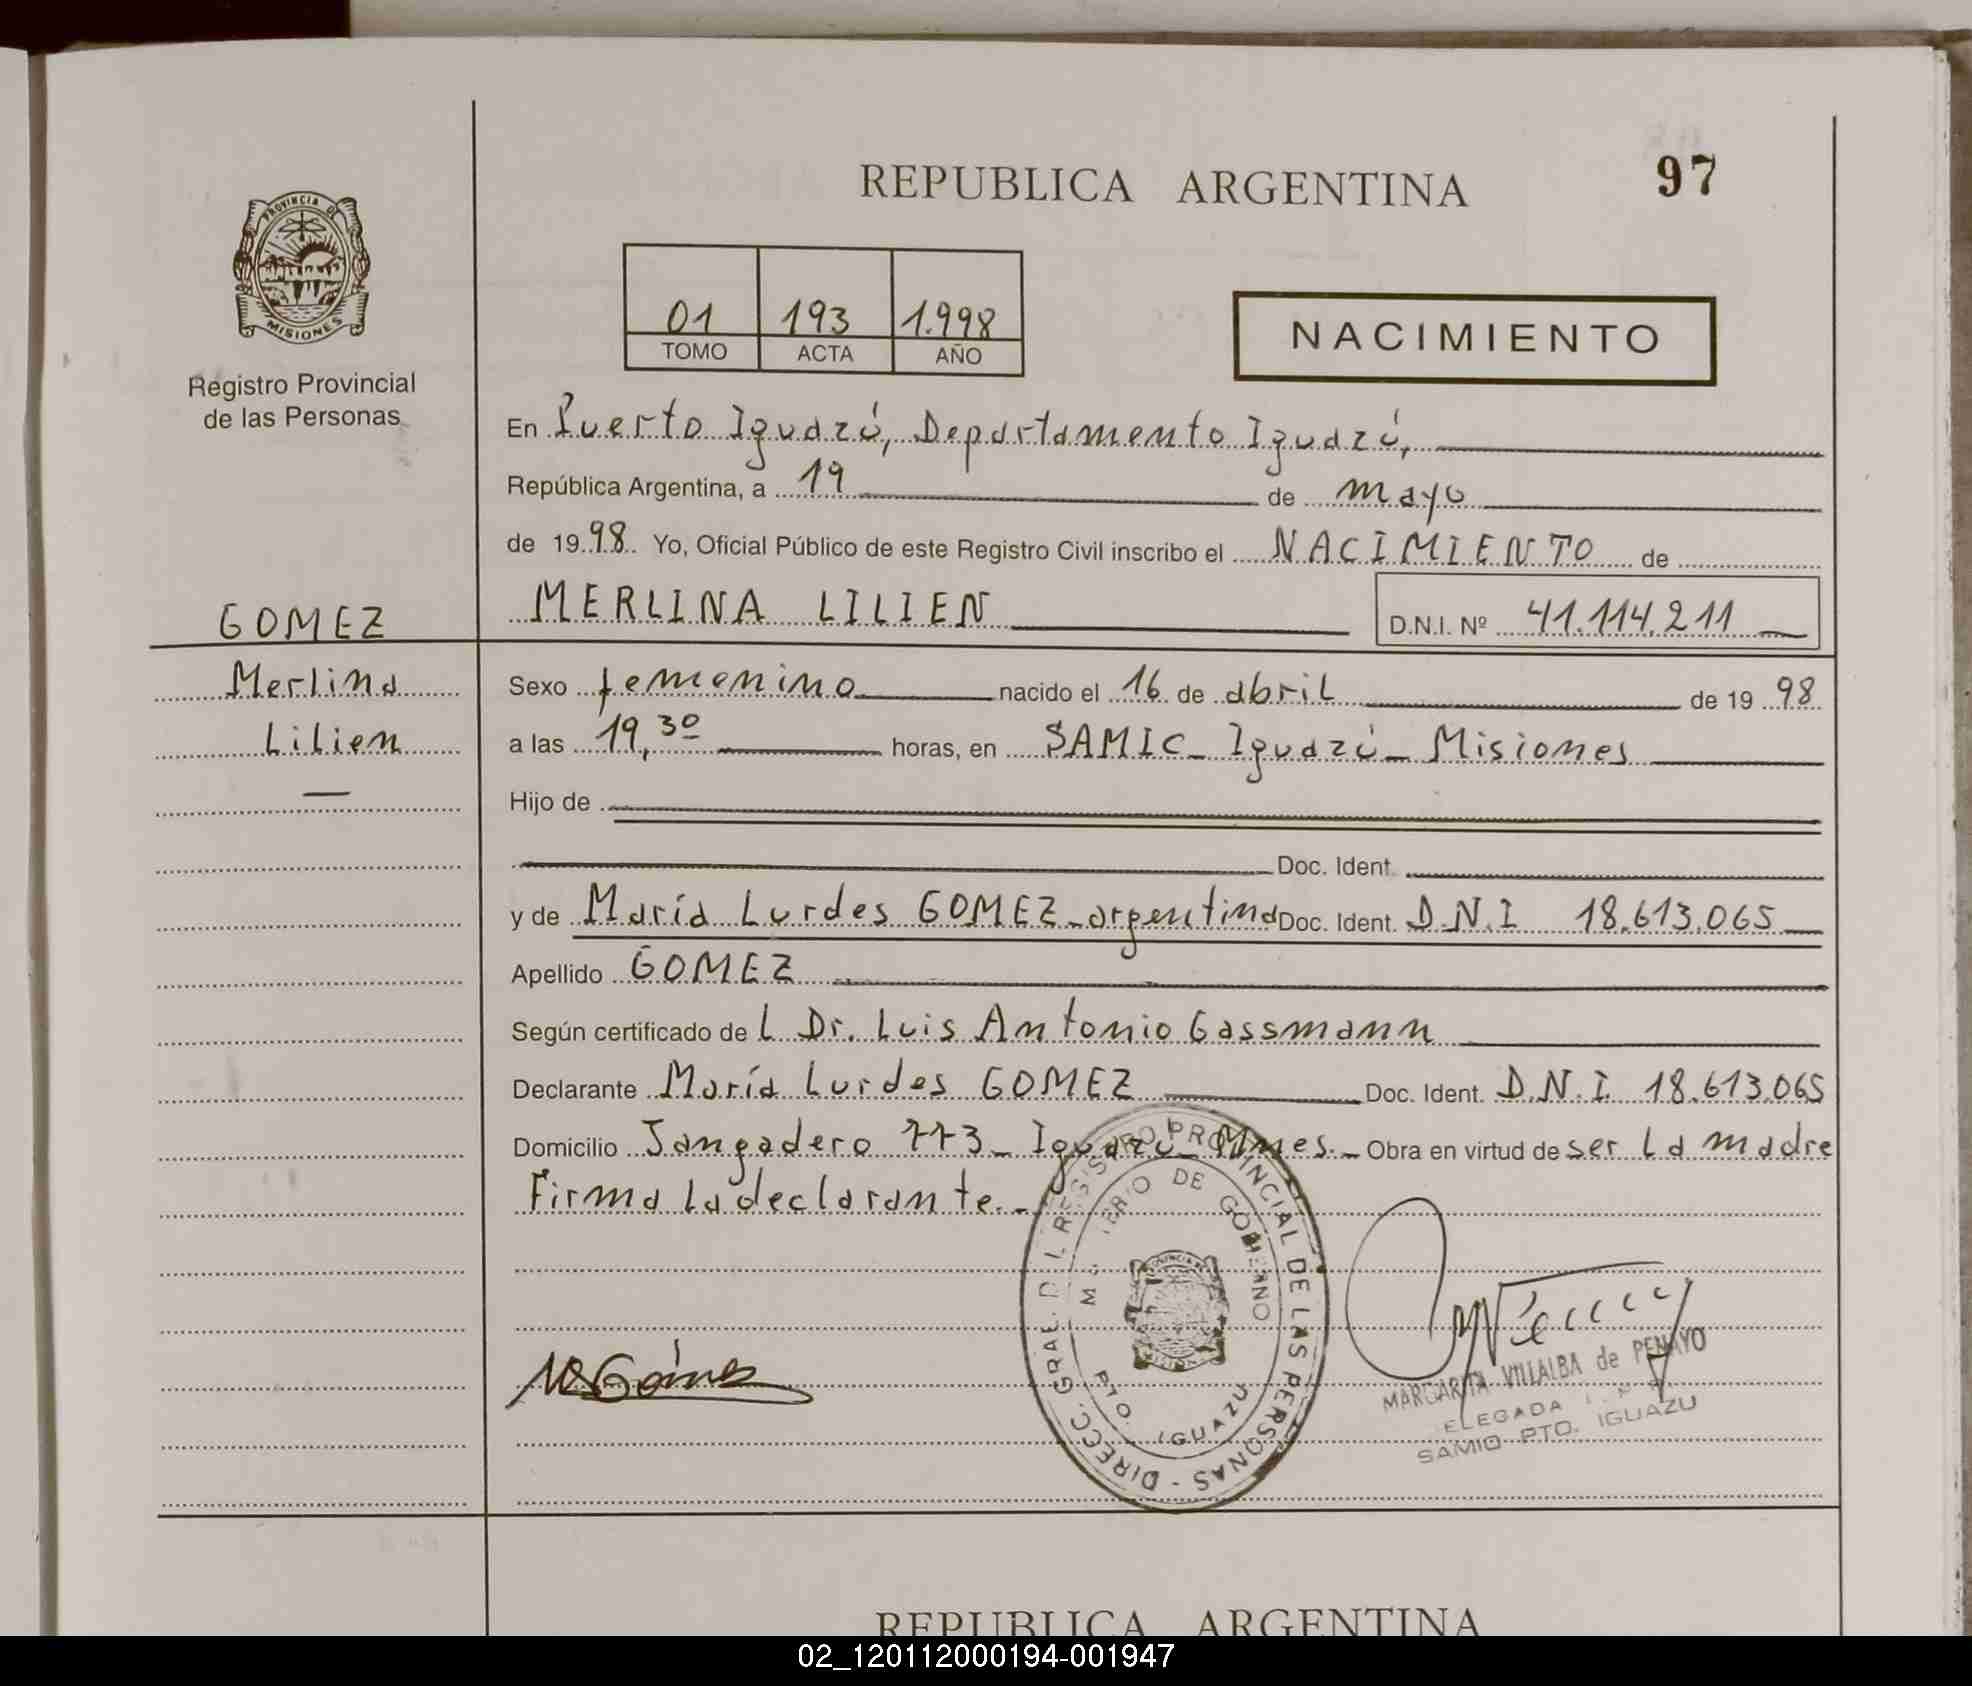 REPUBLICA ARGENTINA
97
PROVINCIA DE
MISIONES
Registro Provincial
de las Personas
01 193 1.998
TOMO ACTA AÑO
NACIMIENTO
En Puerto Iguazú, Departamento Iguazú,
República Argentina, a 19 de mayo
de 1998 Yo, Oficial Público de este Registro Civil inscribo el NACIMIENTO de
MERLINA LILIEN D.N.I. Nº 41.114.211
GOMEZ
Merlina
Lilien
Sexo femenino nacido el 16 de abril de 19 98
a las 19,30 horas, en SAMIC_ Iguazú_ Misiones
Hijo de
Doc. Ident.
y de María Lurdes GOMEZ_argentina Doc. Ident. D.N.I 18.613.065
Apellido GOMEZ
Según certificado de L Dr. Luis Antonio Gassmann
Declarante María Lurdes GOMEZ Doc. Ident. D.N.I. 18.613.065
Domicilio Jangadero 773_ Iguazú_ Mnes._ Obra en virtud de ser la madre
Firma la declarante._
DIRECC. GRAL. DEL REGISTRO PROVINCIAL DE LAS PERSONAS -
MINISTERIO DE GOBIERNO
PTO. IGUAZU
Gómez
MARGARITA VILLALBA de PENAYO
ELEGADA
SAMIC PTO. IGUAZU
REPUBLICA ARGENTINA
02_120112000194-001947